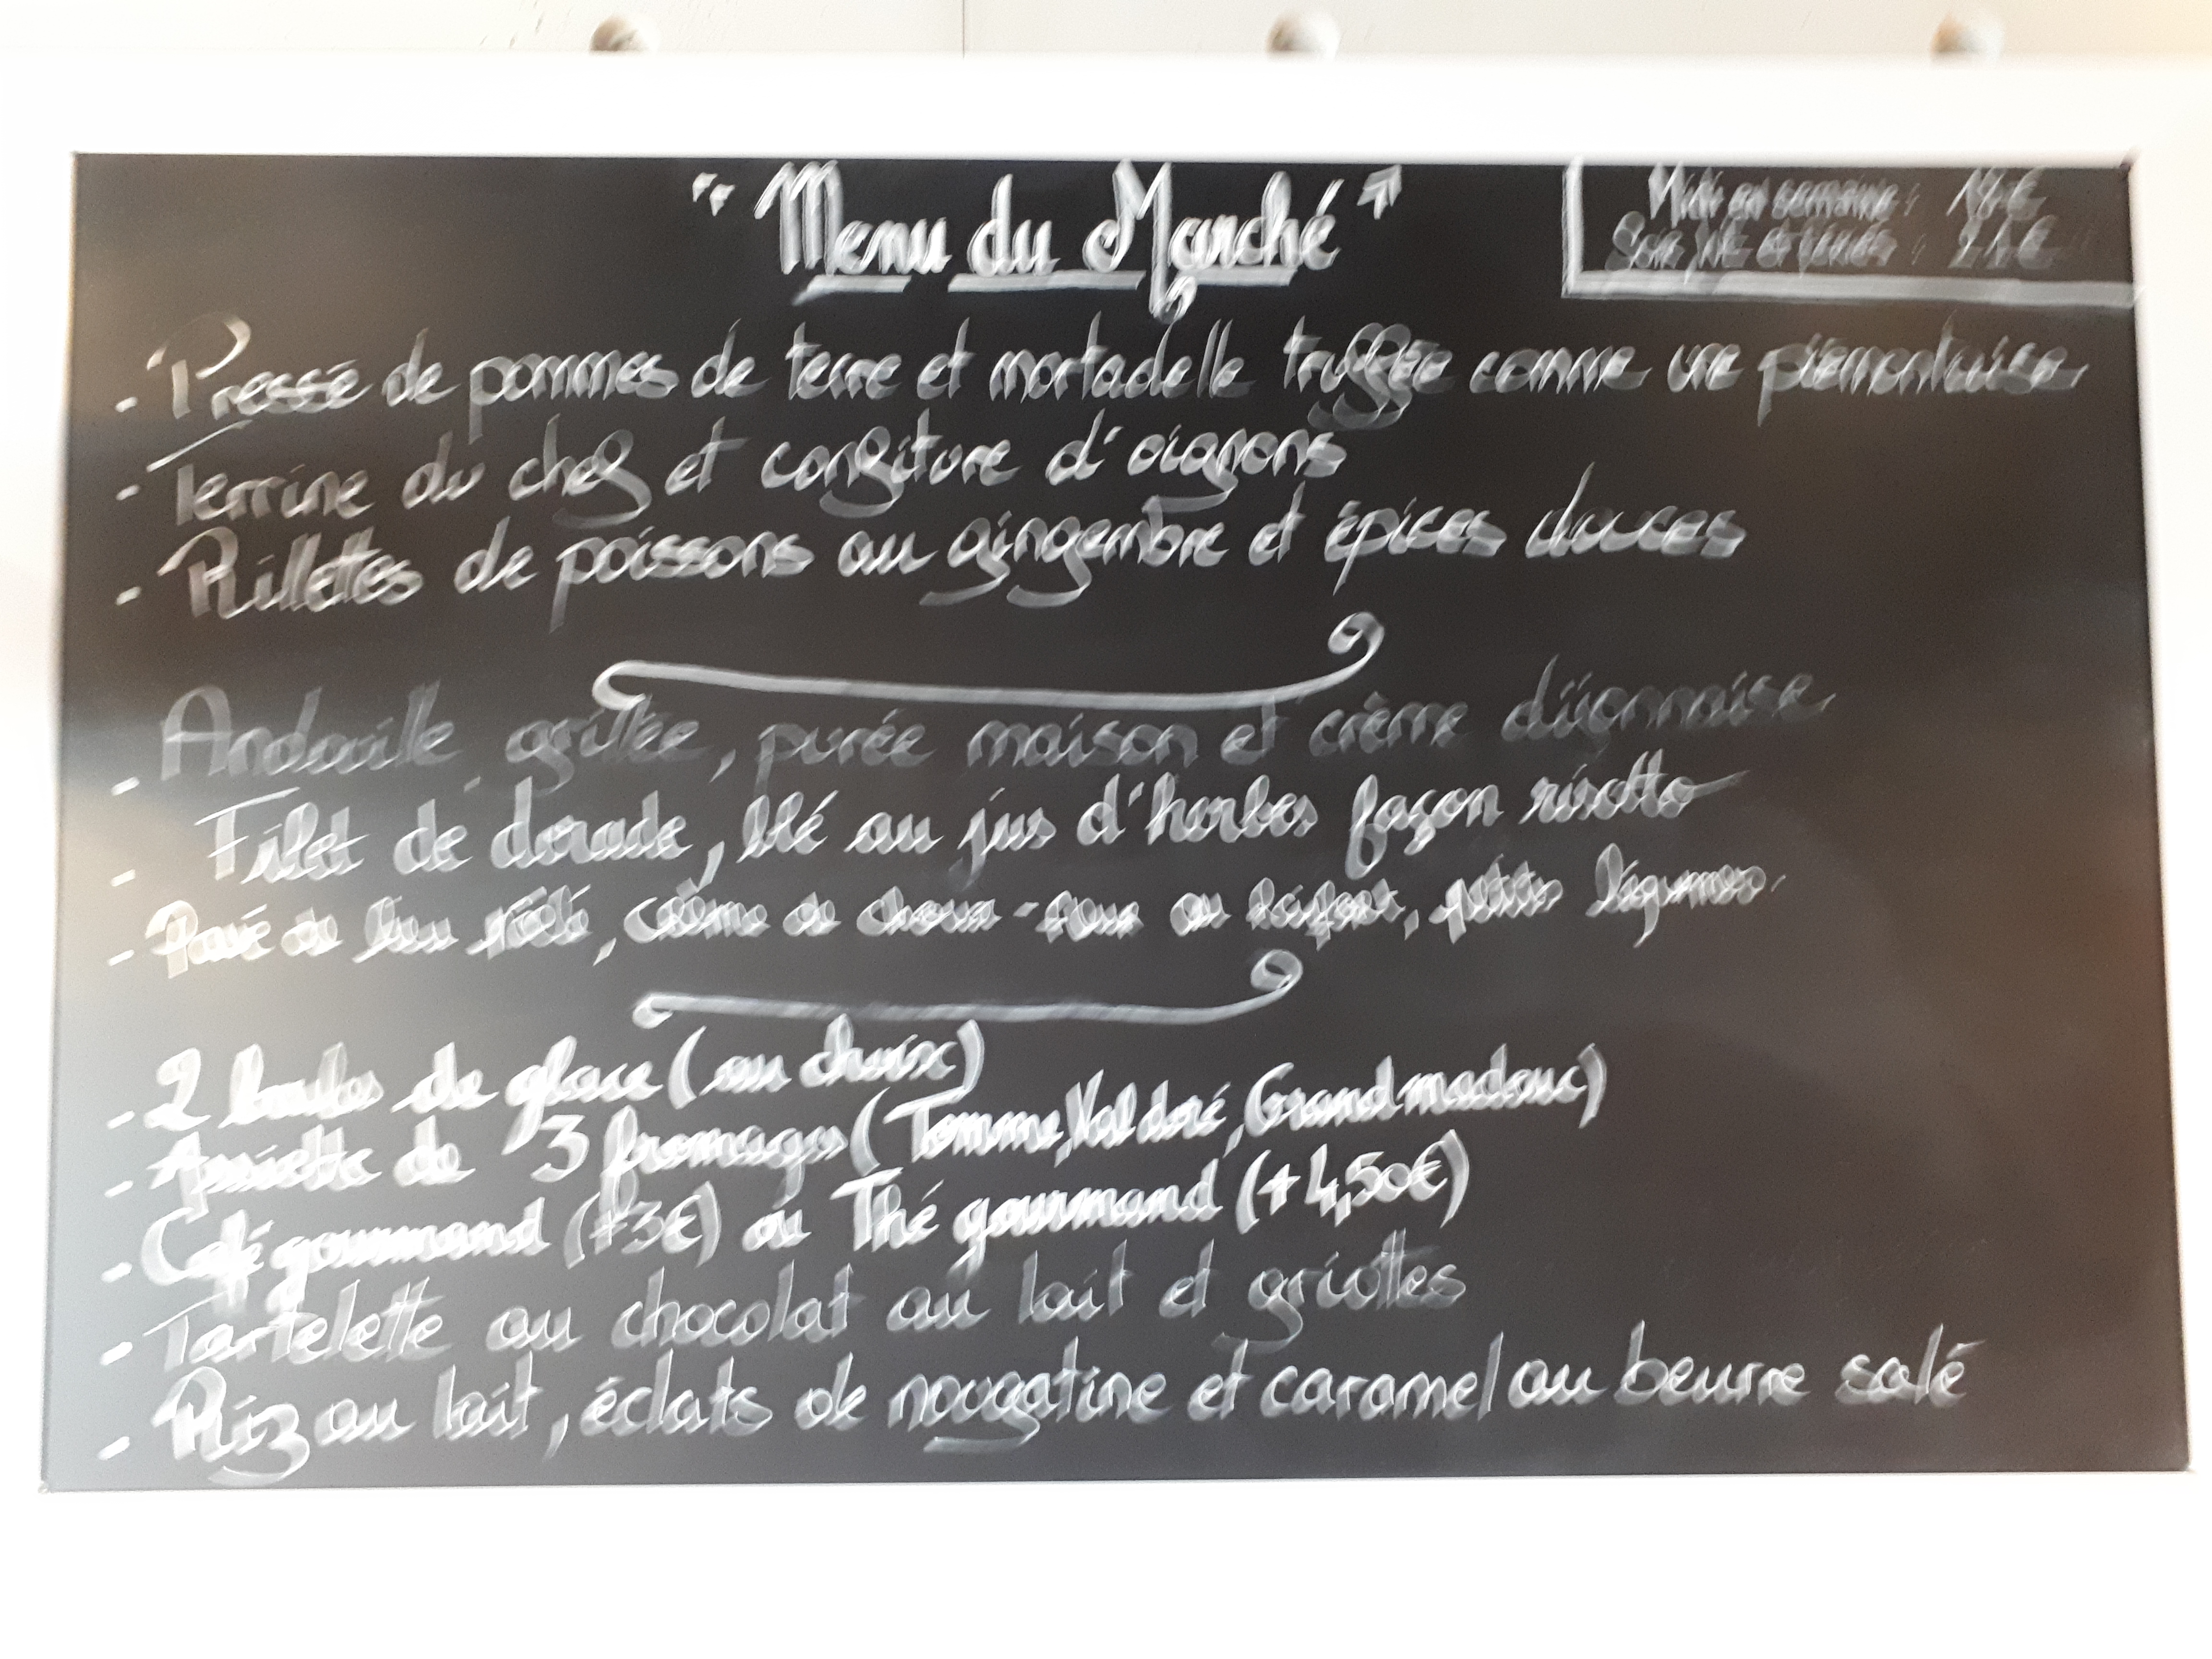 "Menu du Marché"
Midi en semaine : 18€
Soir, WE et fériés : 21€
- Pressé de pommes de terre et mortadelle truffée comme une piémontaise
- Terrine du chef et confiture d'oignons
- Rillettes de poissons au gingembre et épices douces
- Andouille grillée, purée maison et crème dijonnaise
- Filet de dorade, blé au jus d'herbes façon risotto
- Pavé de lieu rôti, crème de choux-fleur au raifort, petits légumes
- 2 boules de glace (au choix)
- Assiette de 3 fromages (Tomme, Val doré, Grand madeuc)
- Café gourmand (+3€) ou Thé gourmand (+4,50€)
- Tartelette au chocolat au lait et griottes
- Riz au lait, éclats de nougatine et caramel au beurre salé